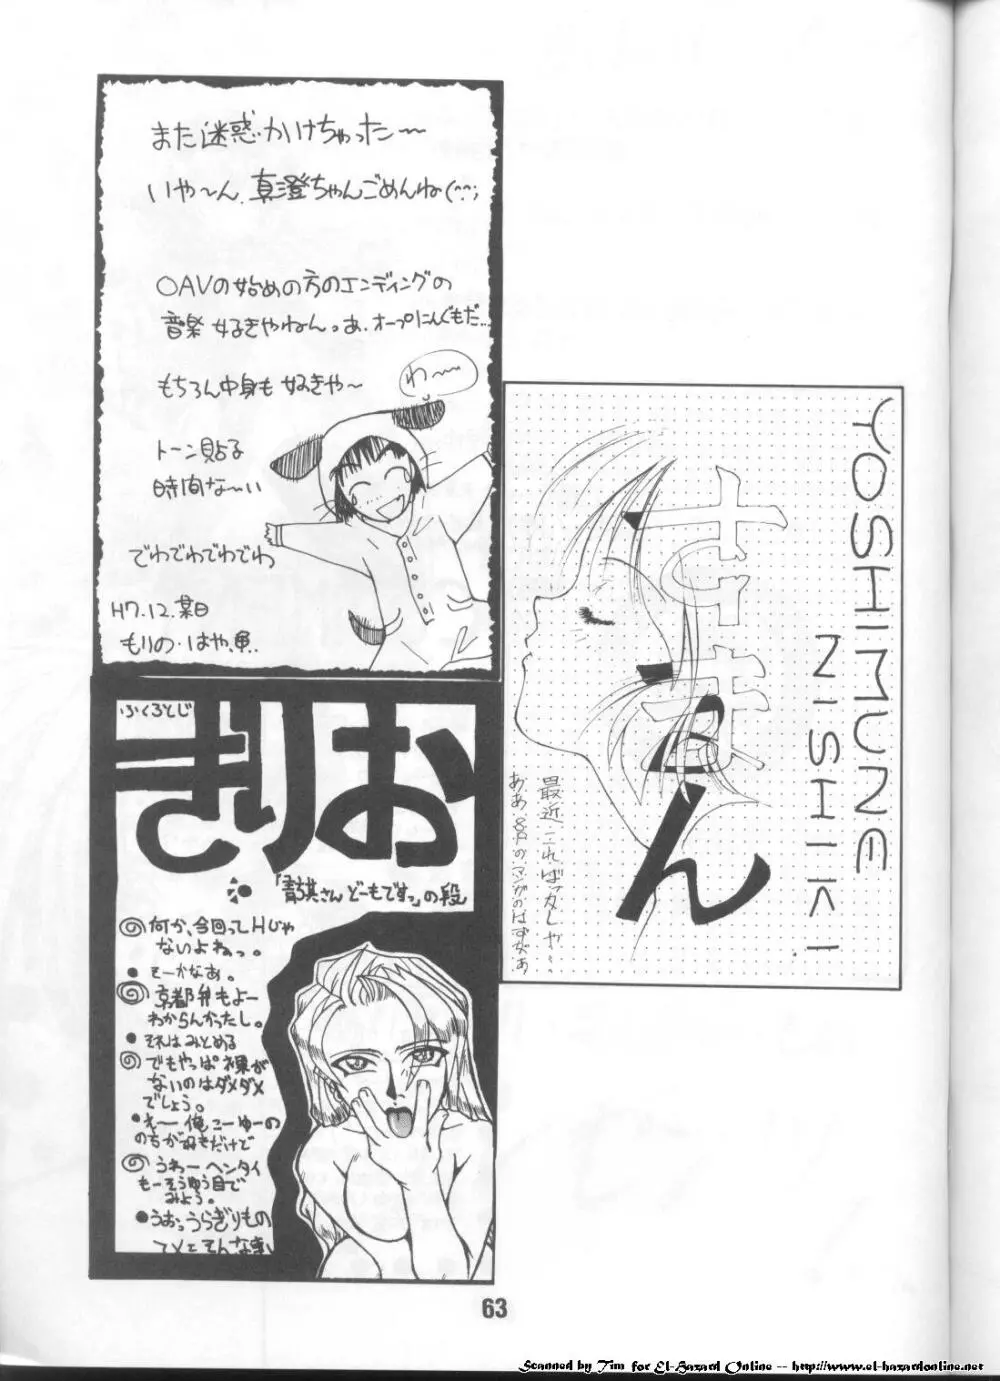 また迷惑かけちゃった〜
いや〜ん、真澄ちゃんごめんね(^^;
OAVの始めの方のエンディングの
音楽 好きやねん。あ、オープにんぐもだ…
もちろん中身も 好きや〜
わ〜
トーン貼る
時間な〜い
でわでわでわでわ
H7.12.某日
もりの・はや
YOSHIMUNE
NISHIKI
最近こればっかしや〜。
ああ8Pのマンガのはずがぁ
ふくろとじ
おりき
「さん どーもですっ」の段
何か、今回ってHじゃ
ないよねっ。
●そーかなあ。
京都弁もよー
わからんかったし。
●それはみとめる
でもやっぱ裸が
ないのはダメダメ
でしょう。
●えー 俺こーゆーの
のちが好きだけど
うわー ヘンタイ
もーそうゆう目で
みよう。
●うおっうらぎりもの
63
Scanned by Tim for El-Hazard Online -- http://www.el-hazardonline.net